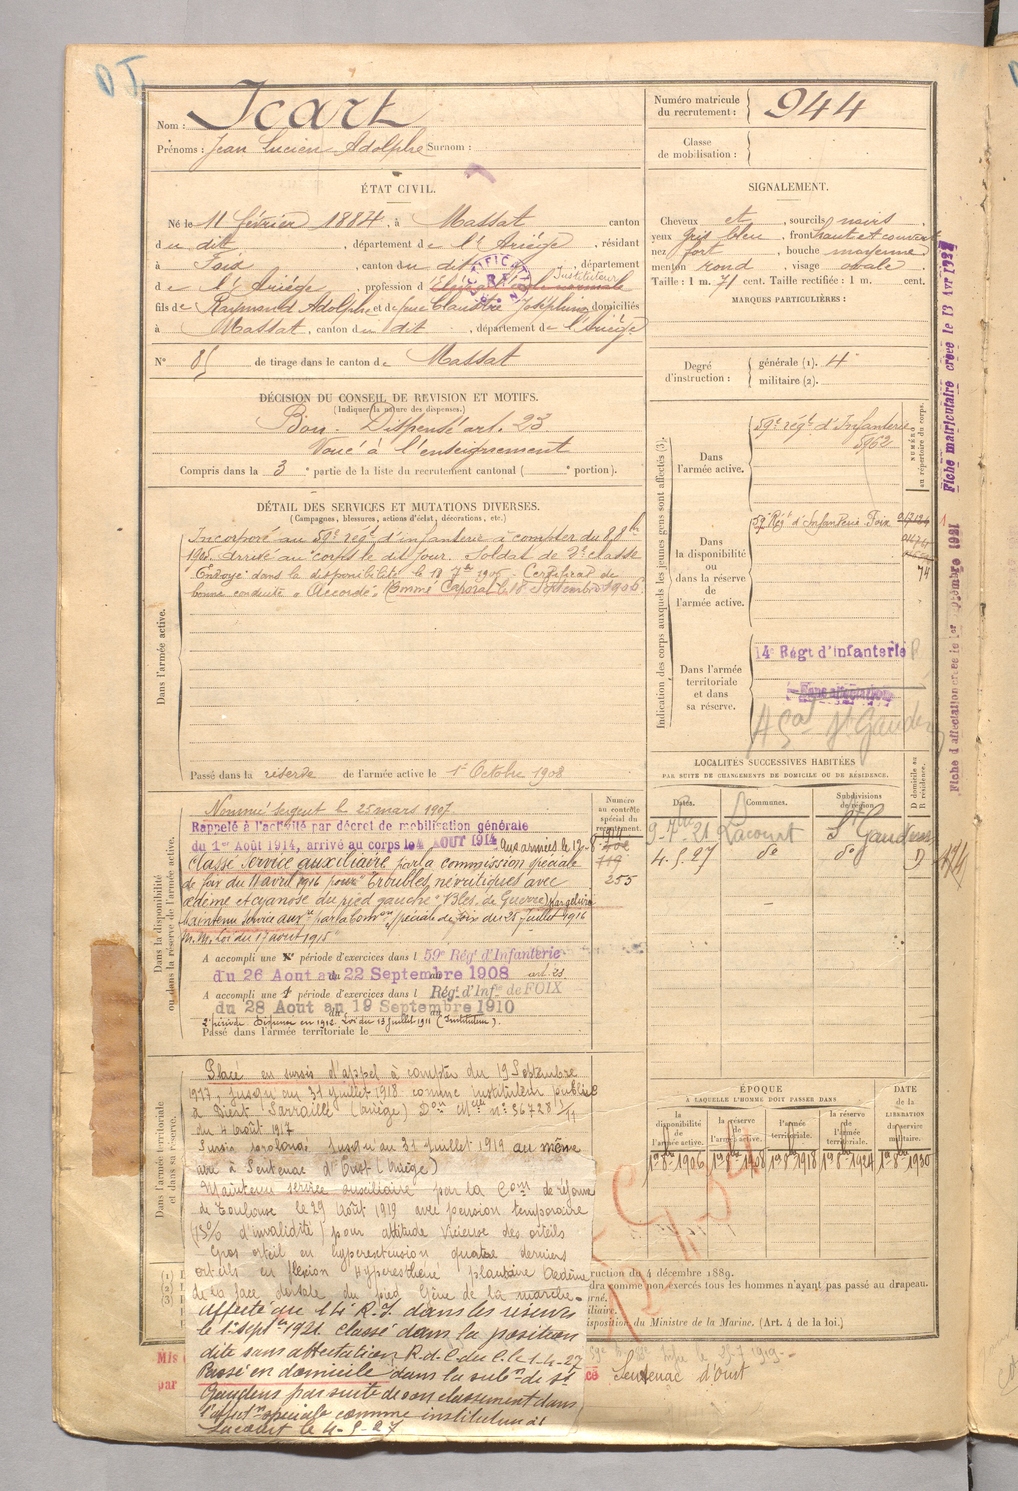 Nom : Icart
Prénoms : Jean Lucien Adolphe Surnom :
Numéro matricule
du recrutement : 944
Classe
de mobilisation :
ÉTAT CIVIL.
Né le 11 février 1884, à Massat canton
du dit, département de l'Ariège, résidant
à Foix, canton du dit, département
de l'Ariège, profession d' Instituteur
fils de Raymond Adolphe et de feue Claustre Joséphine domiciliés
à Massat, canton du dit, département de l'Ariège
N° 85 de tirage dans le canton de Massat
SIGNALEMENT.
Cheveux et, sourcils noirs,
yeux gris bleu, front haut et couvert
nez fort, bouche moyenne
menton rond, visage ovale
Taille : 1 m. 71 cent. Taille rectifiée : 1 m. cent.
MARQUES PARTICULIÈRES :
Degré
d'instruction :
générale (1). 4
militaire (2).
DÉCISION DU CONSEIL DE REVISION ET MOTIFS.
(Indiquer la nature des dispenses.)
Bon. Dispensé art. 23
Voué à l'enseignement
Compris dans la 3e partie de la liste du recrutement cantonal ( e portion).
DÉTAIL DES SERVICES ET MUTATIONS DIVERSES.
(Campagnes, blessures, actions d'éclat, décorations, etc.)
Dans l'armée active.
Incorporé au 59e régt d'infanterie à compter du 8 8bre
1905. Arrivé au corps le dit jour. Soldat de 2e classe
Envoyé dans la disponibilité le 18 7bre 1906. Certificat de
bonne conduite "Accordé". Nommé Caporal le 18 Septembre 1906
Passé dans la réserve de l'armée active le 1er Octobre 1908
Indication des corps auxquels les jeunes gens sont affectés (3).
NUMÉRO
au répertoire du corps.
Dans
l'armée active.
59e régt d'Infanterie
5962
Dans
la disponibilité
ou
dans la réserve
de
l'armée active.
59e Régt d'Infanterie Foix
74
Dans l'armée
territoriale
et dans
sa réserve.
14e Régt d'infanterie
St Gaudens
Fiche matriculaire créée le 13 Avr 1927
Fiche d'affectation créée le 1er septembre 1921
LOCALITÉS SUCCESSIVES HABITÉES
PAR SUITE DE CHANGEMENTS DE DOMICILE OU DE RÉSIDENCE.
Dates. Communes. Subdivisions
de région. D domicile ou
R résidence.
9-7bre 21 Lacourt St Gaudens
4.5.27 do do D
Dans la disponibilité
ou dans la réserve de l'armée active.
Numéro
au contrôle
spécial du
recrutement.
1914
255
Nommé Sergent le 25 mars 1907
Rappelé à l'activité par décret de mobilisation générale
du 1er Août 1914, arrivé au corps le 4 AOUT 1914 aux armées le 12-8
Classé Service auxiliaire par la commission spéciale
de foix du 11 avril 1916 pour "Troubles névritiques avec
œdème et cyanose du pied gauche" (Bles. de Guerre) par gelure
Maintenu Service auxre par la Comon spéciale de Foix du 25 Juillet 1916
M. M. Loi du 17 août 1915"
A accompli une 1e période d'exercices dans l 59e Régt d'Infanterie
du 26 Aout au 22 Septembre 1908
A accompli une période d'exercices dans l Régt d'Infie de FOIX
du 28 Aout au 19 Septembre 1910
2e période. Dispensé en 1912. Loi du 13 Juillet 1911 (Instituteur).
Passé dans l'armée territoriale le
Dans l'armée territoriale
et dans sa réserve.
Placé en sursis d'appel à compter du 19 Septembre
1917, jusqu'au 31 Juillet 1918 comme instituteur public
à Biert Sarraillé (Ariège) Don Mlle n° 36728 1/11
du 4 Août 1917
Sursis prolongé jusqu'au 31 Juillet 1919 au même
titre à Sentenac d'Oust (Ariège)
Maintenu service auxiliaire par la Com de réforme
de Toulouse le 29 Août 1919 avec pension temporaire
(15% d'invalidité) pour attitude vicieuse des orteils
Gros orteil en hyperextension quatre derniers
orteils en flexion Hyperesthésie plantaire Oedème
de la face dorsale du pied Gêne de la marche.
Affecté au 14e R.I. dans les réserves
le 1er Sept 1921. Classé dans la position
dite sans affectation R. d. C du C. le 1-4-27
Passé en domicile dans la subon de St
Gaudens par suite de son classement dans
l'affecton spéciale comme instituteur à
Lacourt le 4-5-27
ÉPOQUE
À LAQUELLE L'HOMME DOIT PASSER DANS
la
disponibilité
de
l'armée active.
la réserve
de
l'armée active.
l'armée
territoriale.
la réserve
de
l'armée
territoriale.
DATE
de la
LIBÉRATION
du service
militaire.
1er 8bre 1906 1er 8bre 1908 1er 8bre 1918 1er 8bre 1924 1er 8bre 1930
ruction du 4 décembre 1889.
dra comme non exercés tous les hommes n'ayant pas passé au drapeau.
rné.
iliaire.
isposition du Ministre de la Marine. (Art. 4 de la loi.)
Mis
par
Sentenac d'Oust